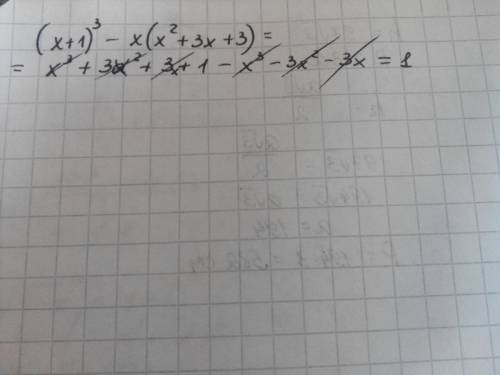 (x+1)³ - x(x²+3x+3) =
= x³ + 3x² + 3x + 1 - x³ - 3x² - 3x = 1